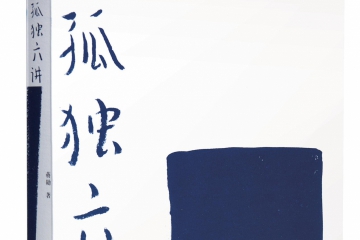 孤独六讲
蒋勋 著
孤独六